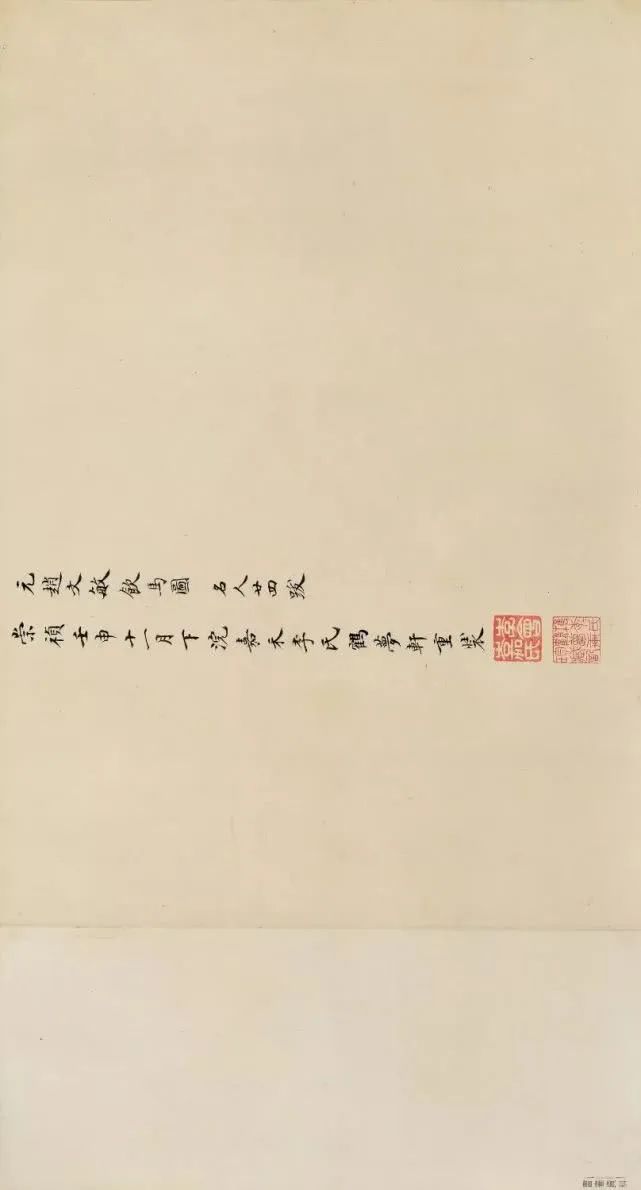 元趙文敏飲馬圖 名人廿四跋
崇禎壬申十一月下浣嘉禾李氏鶴夢軒重裝